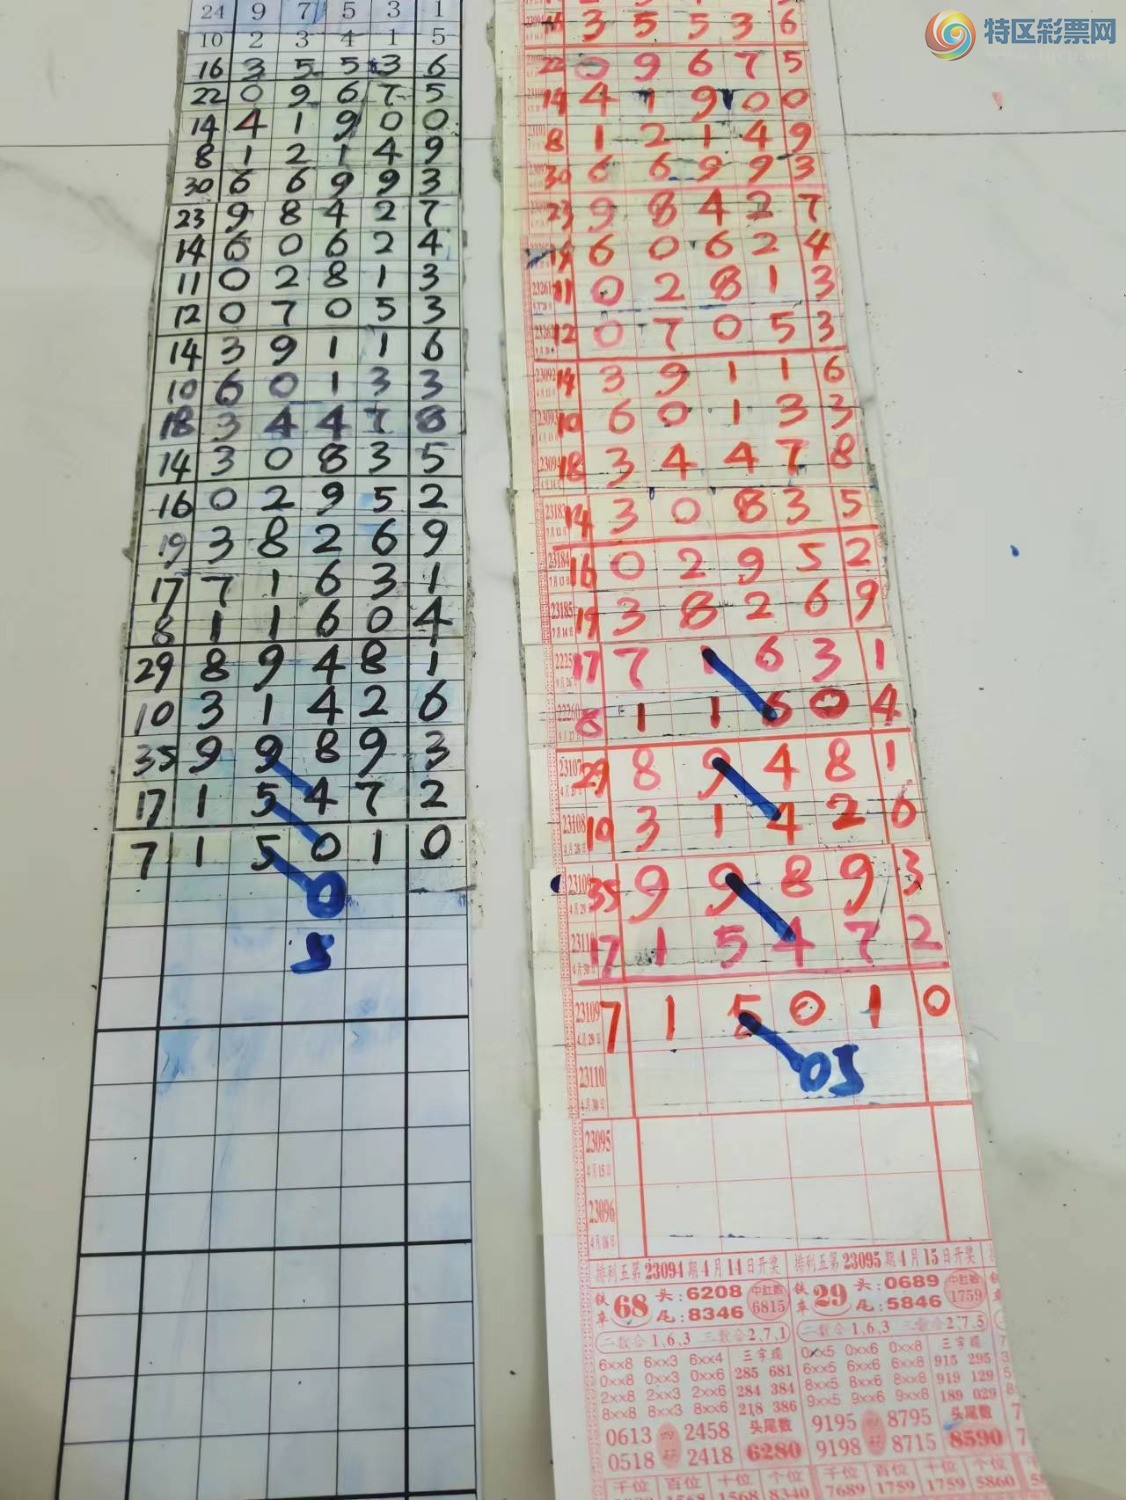 特区彩票网
24 9 7 5 3 1
10 2 3 4 1 5
16 3 5 5 3 6
22 0 9 6 7 5
14 4 1 9 0 0
8 1 2 1 4 9
30 6 6 9 9 3
23 9 8 4 2 7
14 6 0 6 2 4
11 0 2 8 1 3
12 0 7 0 5 3
14 3 9 1 1 6
10 6 0 1 3 3
18 3 4 4 7 8
14 3 0 8 3 5
16 0 2 9 5 2
19 3 8 2 6 9
17 7 1 6 3 1
8 1 1 6 0 4
29 8 9 4 8 1
10 3 1 4 2 6
35 9 9 8 9 3
17 1 5 4 7 2
7 1 5 0 1 0
0
5
3 5 5 3 6
22 0 9 6 7 5
14 4 1 9 0 0
8 1 2 1 4 9
30 6 6 9 9 3
23 9 8 4 2 7
14 6 0 6 2 4
11 0 2 8 1 3
12 0 7 0 5 3
23092 14 3 9 1 1 6
23093 10 6 0 1 3 3
23094 18 3 4 4 7 8
23183 14 3 0 8 3 5
23184 16 0 2 9 5 2
23185 19 3 8 2 6 9
17 7 1 6 3 1
22260 8 1 1 6 0 4
23107 29 8 9 4 8 1
23108 10 3 1 4 2 6
23109 35 9 9 8 9 3
23110 17 1 5 4 7 2
23109 7 1 5 0 1 0
4月29日
05
23110
4月30日
23095
4月15日
23096
4月16日
排列五第23094期4月14日开奖 排列五第23095期4月15日开奖
铁车 68 头:6208 尾:8346 中肚数 6815
铁车 29 头:0689 尾:5846 中肚数 1759
二数合1,6,3 三数合2,7,1 二数合1,6,3 三数合2,7,5
6xx8 6xx3 6xx4 三字现 0xx5 0xx6 0xx8 三字现
0xx8 0xx3 0xx6 285 681 6xx5 6xx6 6xx8 915 295
2xx8 2xx3 2xx6 284 384 8xx5 8xx6 8xx8 919 129
8xx8 8xx3 8xx6 218 386 9xx5 9xx6 9xx8 189 029
0613 2458 头尾数 9195 8795 头尾数
0518 2418 6280 9198 8715 8590
千位 百位 十位 个位 千位 百位 十位 个位
1568 1568 8340 7689 1759 1759 5860